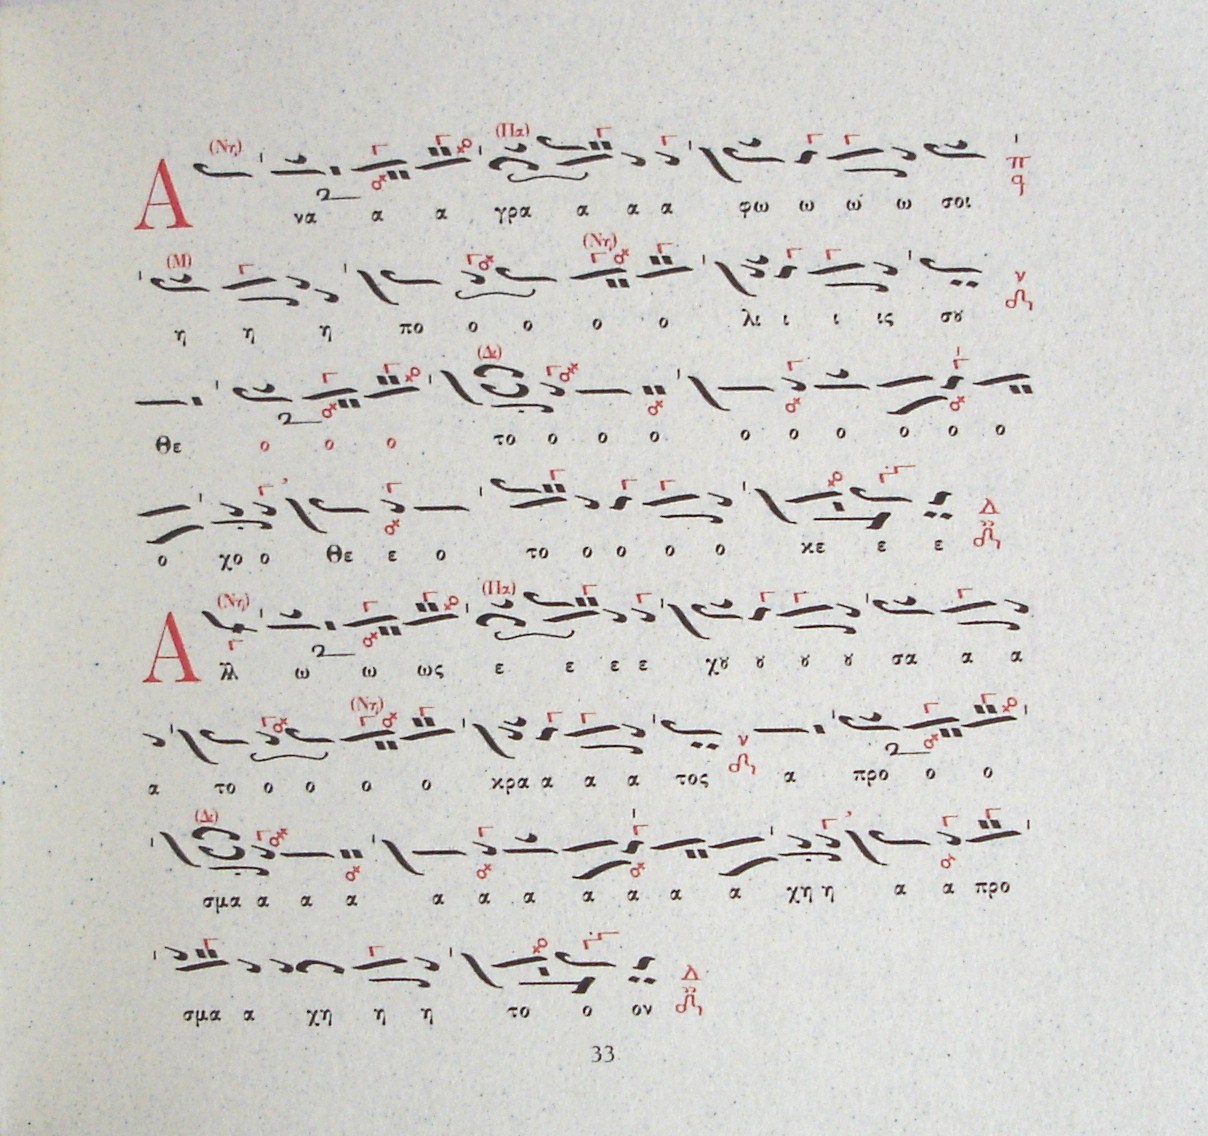 (Νη) (Πα)
Α να α α γρα α α α φω ω ω ω σοι
(Μ) (Νη)
η η η πο ο ο ο ο λι ι ι ις σȣ
(Δι)
Θε ο ο ο το ο ο ο ο ο ο ο ο ο
ο χο ο Θε ε ο το ο ο ο ο κε ε ε
(Νη) (Πα)
Α λλ ω ω ως ε ε ε ε χȣ ȣ ȣ ȣ σα α α
(Νη)
α το ο ο ο ο κρα α α α α τος α προ ο ο
(Δι)
σμα α α α α α α α α α α χη η α α προ
σμα α χη η η το ο ον
33